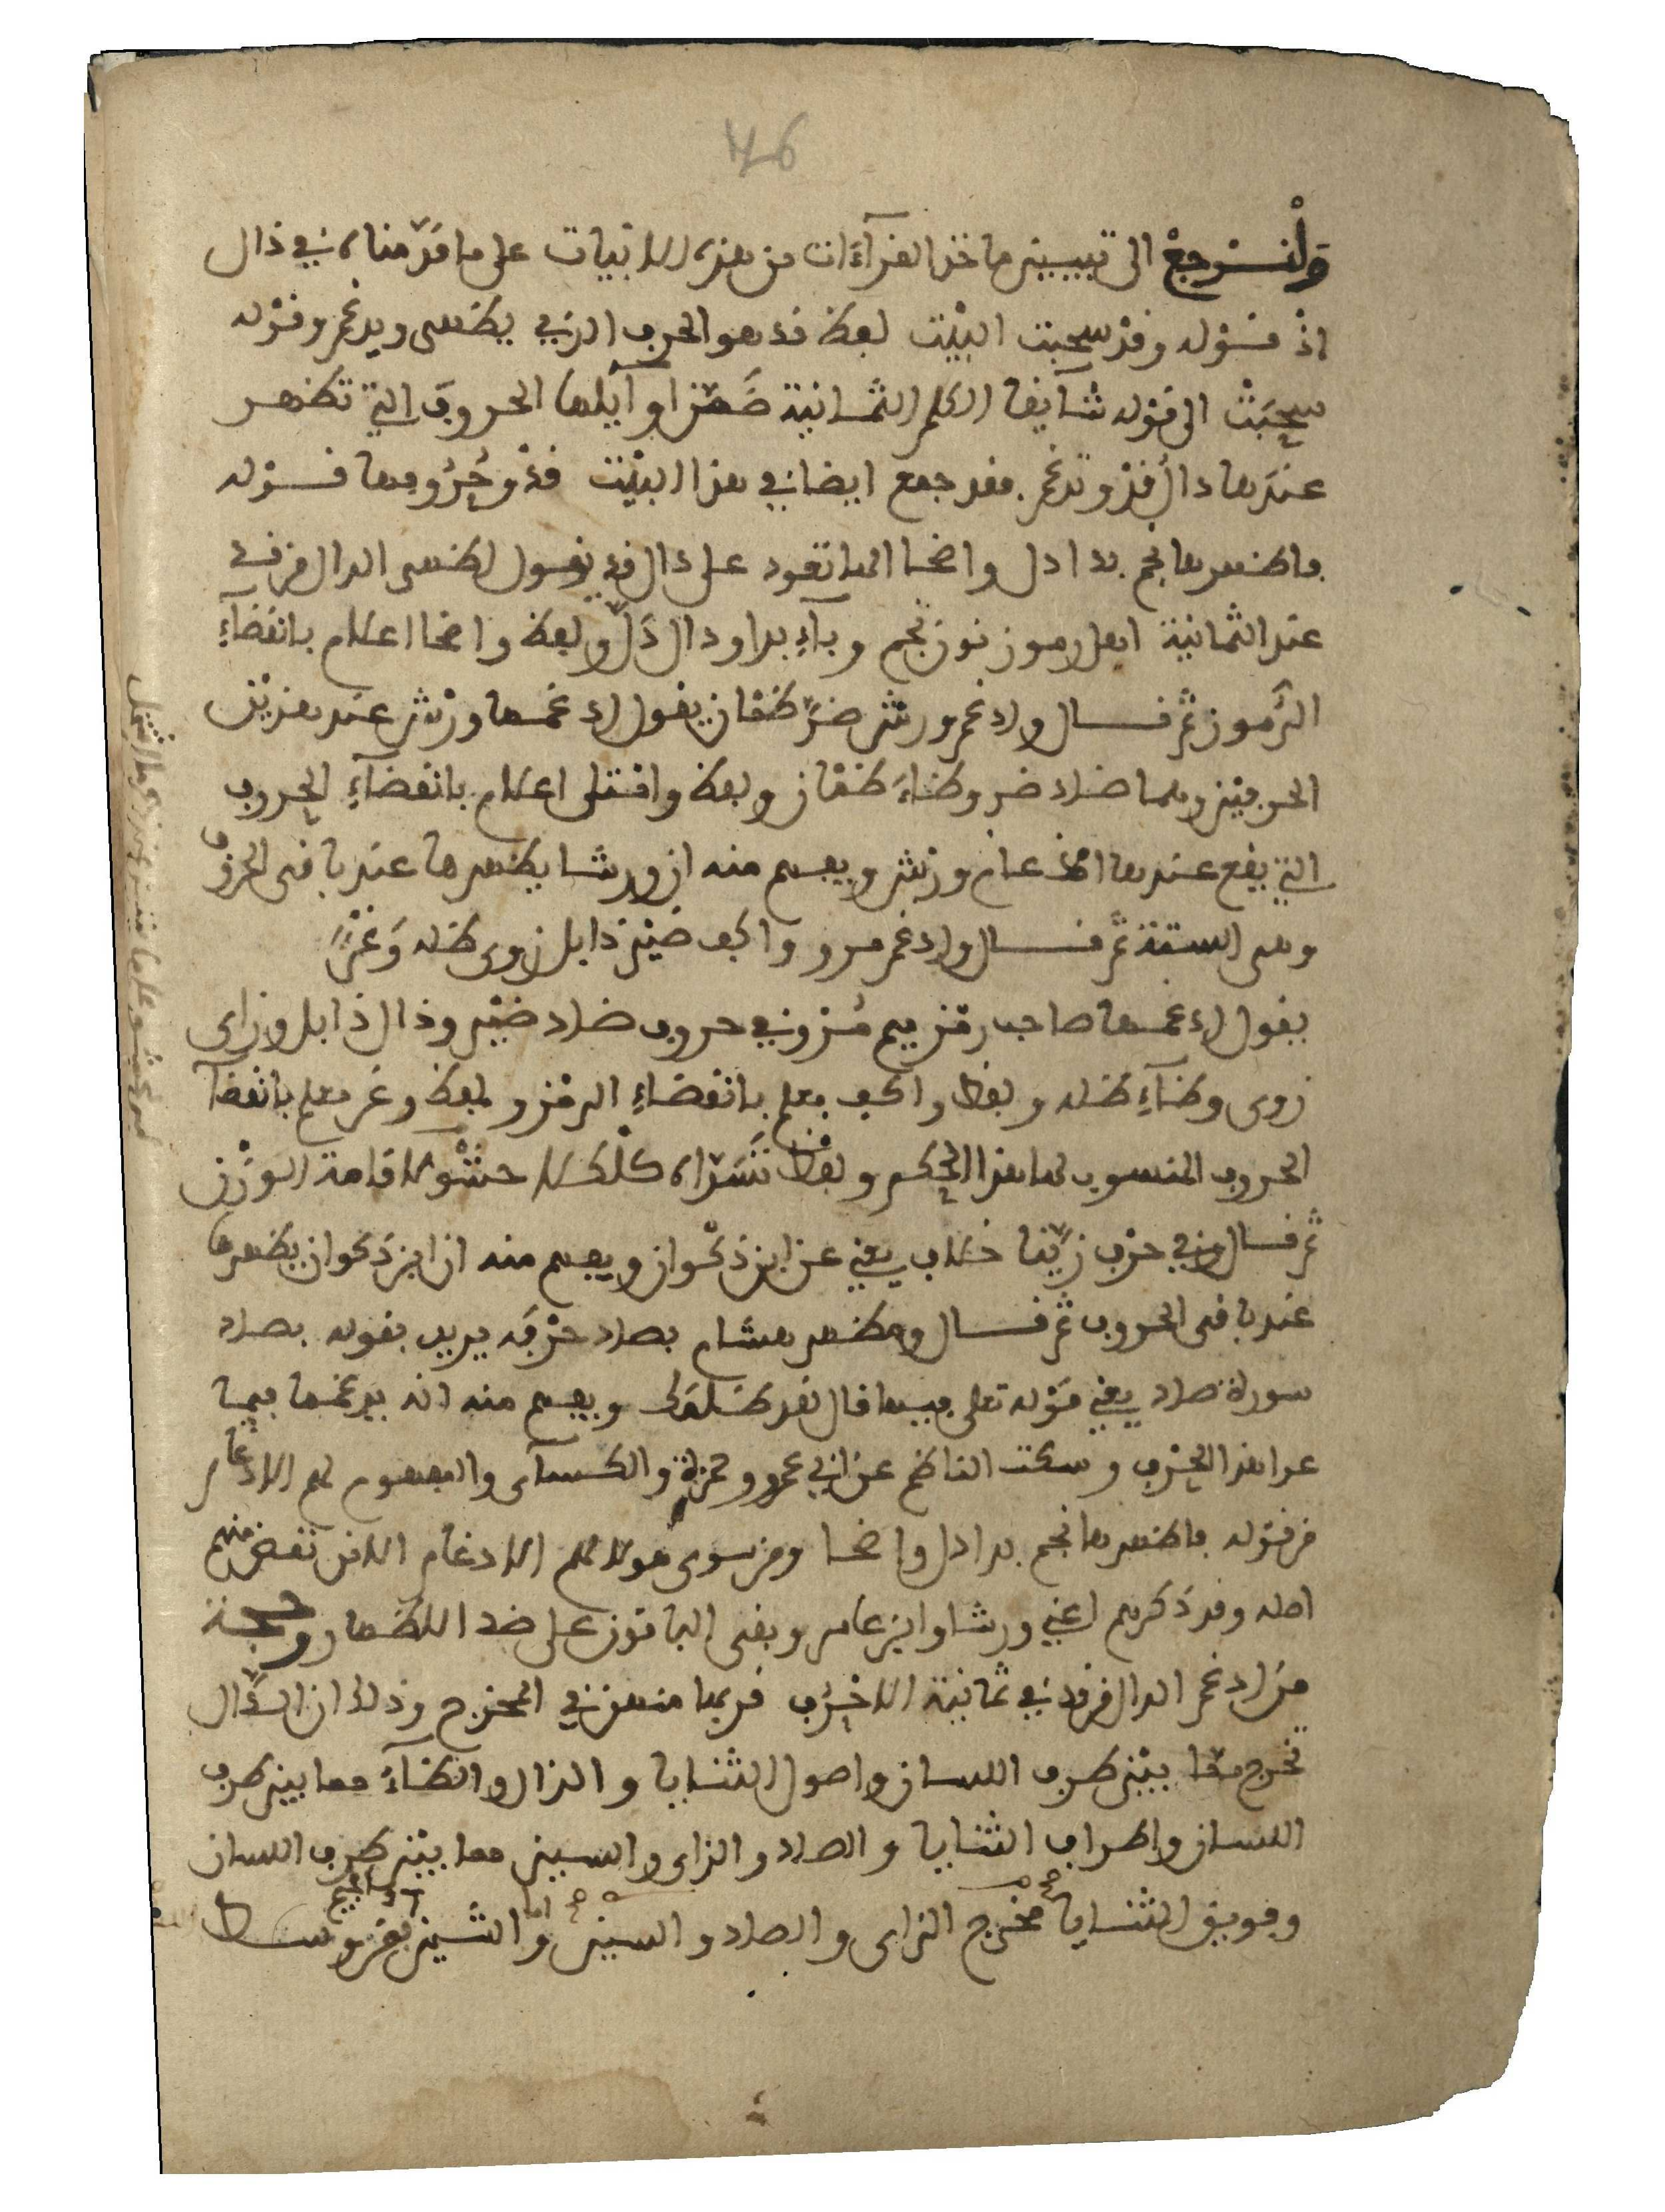 46
ولنرجع الى تبيين ماخذ القرآءات من هذه الابيات على ما قدّمناه في ذال
اذْ قوله وقدْ سحبت البيْت لفظ قد هو الحرف الذي يظهر ويدغم وقوله
سحبَتْ الى قوله شايقا الكلم الثمانية ضَمّنَ اوآيلها الحروف التي تظهر
عندها دال قدْ وتدغم فقد جمع ايضا في هذا البيْت قدْ وحُرُوفها قوله
فاظهرها نجم بدا دل واضحا الها تعود على دال قد يقول اظهر الدال من قد
عند الثمانية اهل رموز نون نجم وبآء بدا ودال دَلّ ولفظ واضحا اعلام بانقضآءِ
الرّموز ثم قال وادغم ورش ضرَّ ظمْان يقول ادغمها ورْش عند هذيْن
الحرفيْن وهما ضاد ضر وظاءَ ظمْان ولفظ وامْتلى اعلام بانقضآءِ الحروف
التي يقع عندها ادغام ورْش ويفهم منه ان ورشا يظهرها عند باقى الحروف
وهى الستة ثم قال وادغم مرو واكف ضيْر ذابل زوى ظله وَغْرٌ
يقول ادغمها صاحب رمْز ميم مُرْو في حروف ضاد ضيْر وذال ذابل وزاى
زوى وظآءِ ظله ولفظ واكف معلم بانقضآءِ الرمْز ولفظ وغر معلم بانقضآ
الحروف المنسوب لها هذا الحكم ولفظ تسَدّاه كلْكَلا حشْو لاقامة الوَزْن
ثم قال وفي حرْف زيّنا خلاف يعني عن ابن ذكْوان ويفهم منه ان ابن ذكوان يظهرها
عند باقى الحروف ثم قال ومظهر هشام بصاد حرْفَه يريد بقوله بصاد
سورة صاد يعني قوْله تعلى فيها قال لقد ظلمَك ويفهم منه انه يدغمها فيما
عدا هذا الحرْف وسكت الناظم عن ابي عمرو وحمزة والكسآى والمفهوم لهم الادغام
من قوله فاظهرها نجم بدا دل واضحا ومن سوى هولا لهم الادغام الا من نقض منهم
اصله وقد ذكرهم اعني ورشا وابن عامر وبقى الباقون على ضد الاظهار وحجة
من ادغم الدال من قد في ثمانية الاحْرُف قربها منهن في المخرج وذلك ان الدّال
تخرج ممّا بيْن طرف اللسان واصول الثنايا والذال والظآءَ مما بين طرف
اللسان واطراف الثنايا والصاد والزاى والسين مما بيْن طرف اللسان
وفويق الثنايا مخرج الزاى والصاد والسين واما الشين والجيم فمن وسط